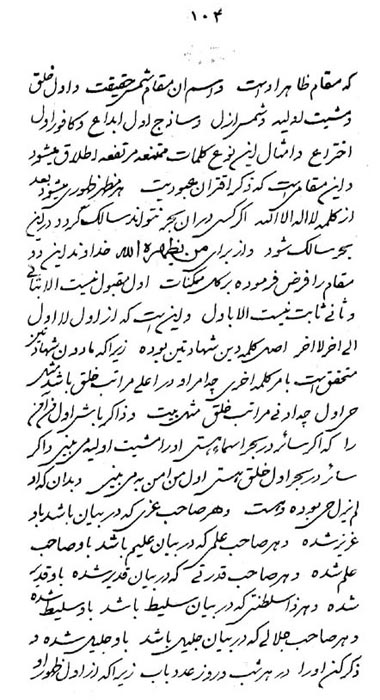 ۱۰۴
که مقام ظاهر اوست و اسم ان مقام شمس حقیقت و اول خلق
و مشیت اولیه و شمس ازل و ساذج اول ابداع و کافور اول
اختراع و امثال این نوع کلمات ممتنعه مرتفعه اطلاق میشود
و این مقامی است که ذکر اقتران عبودیت هر ظهر ظهوری میشود بعد
از کلمه لا اله الا الله اگر کسی در ان بحر نتواند سالک گردد در این
بحر سالک شود و از برای من یظهره الله خداوند این دو
مقام را فرض فرموده بر کل ممکنات اول مقبول نیست الا بثانی
و ثانی ثابت نیست الا باول و این است که از اول لا اول
الی اخر لا اخر اصل کلمه دین شهادتین بوده زیرا که مادون شهادتین
متحقق است بامر کلمه اخری چه امر او در اعلی مراتب خلق باشد مثل
حی اول چه ادنی مراتب خلق منتهی بیت و ذاکر باش اول فراتن
را که اگر سائر در بحر اسماء هستی او را مشیت اولیه می بینی و اگر
سائر در بحر اول خلق هستی اول من امن به می بینی و بدان که او
لم یزل حی بوده و هست و هر صاحب عزی که در بیان باشد باو
عزیز شده و هر صاحب علمی که در بیان علیم باشد باو صاحب
علم شده و هر صاحب قدرتی که در بیان قدیر شده باو قدیر
شده و هر ذا سلطنتی که در بیان سلیط باشد باو سلیط شده
و هر صاحب جلالی که در بیان جلیل باشد باو جلیل شده و
ذکر کن او را در هر شب و روز عدد باب زیرا که از اول ظهور او